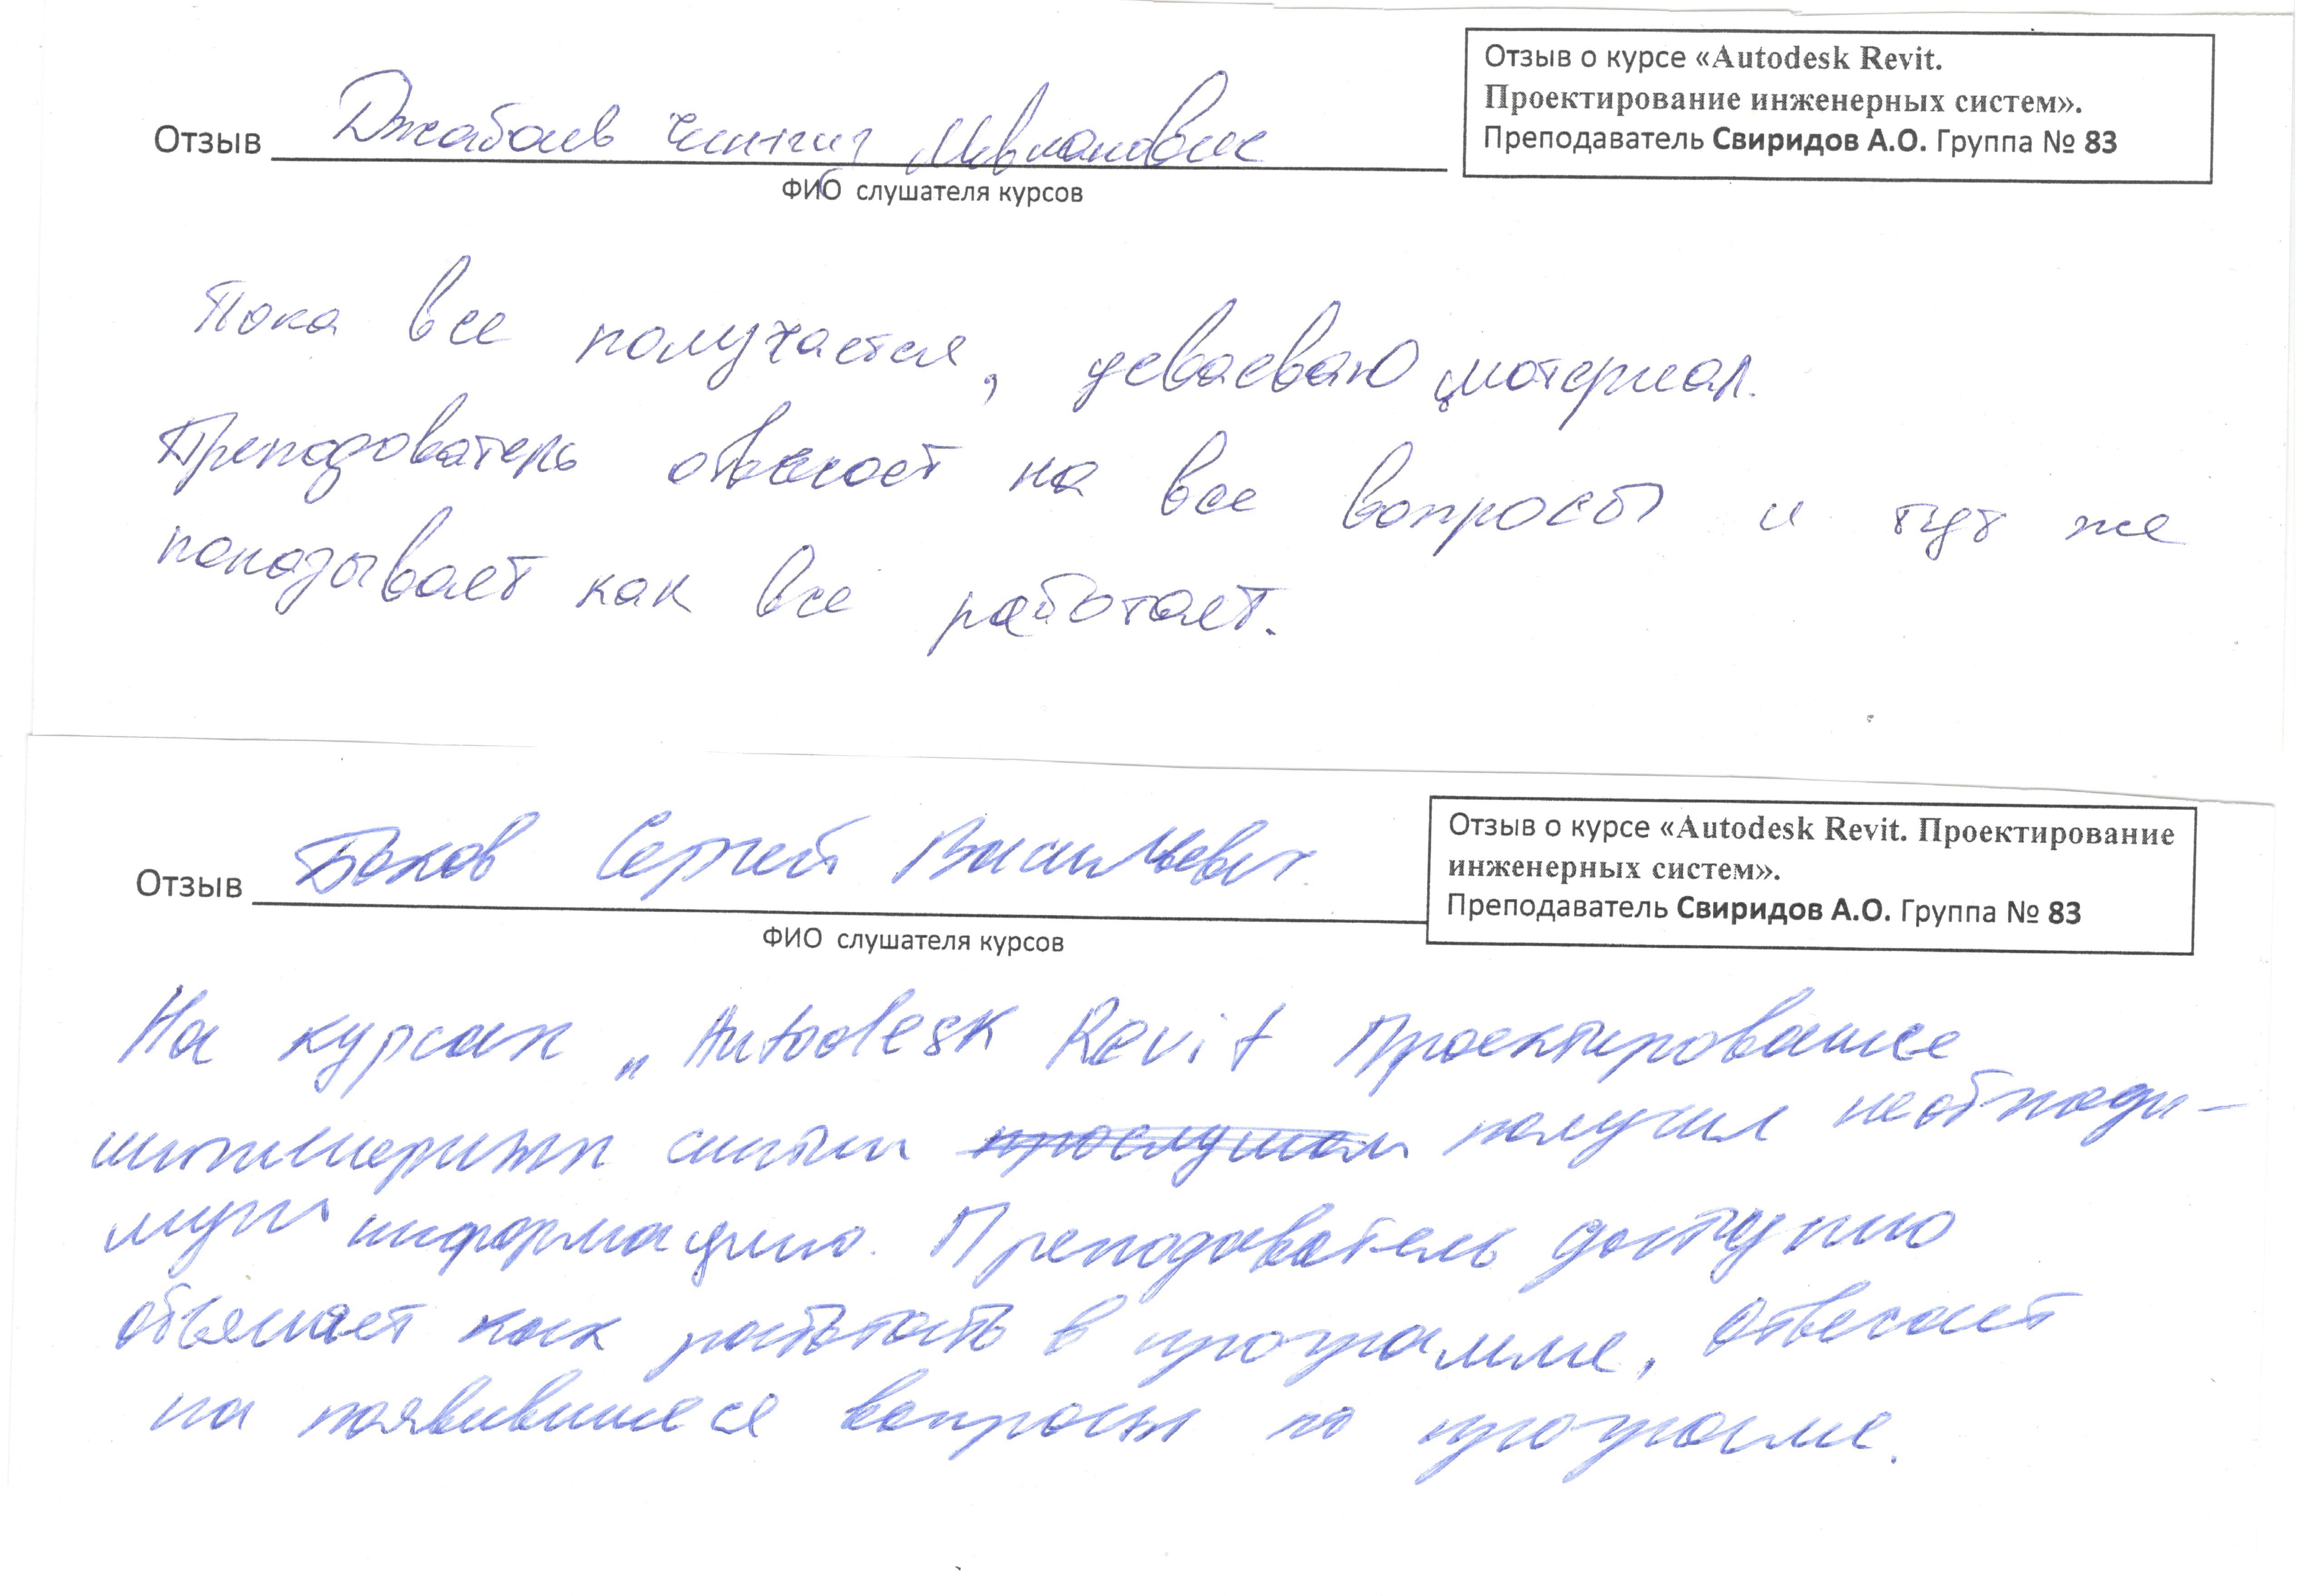 Отзыв о курсе «Autodesk Revit.
Проектирование инженерных систем».
Преподаватель Свиридов А.О. Группа № 83
Отзыв Джабаев Чингиз
ФИО слушателя курсов
Пока все получается, усваеваю материал.
Преподователь отвечает на все вопросы и тут же
показывает как все работает.
Отзыв о курсе «Autodesk Revit. Проектирование
инженерных систем».
Преподаватель Свиридов А.О. Группа № 83
Отзыв Боков Сергей Васильевич
ФИО слушателя курсов
На курсах „Autodesk Revit Проектирование
инженерных систем получил необходи-
мую информацию. Преподаватель доступно
объясняет как работать в программе, отвечает
на появившиеся вопросы по программе.